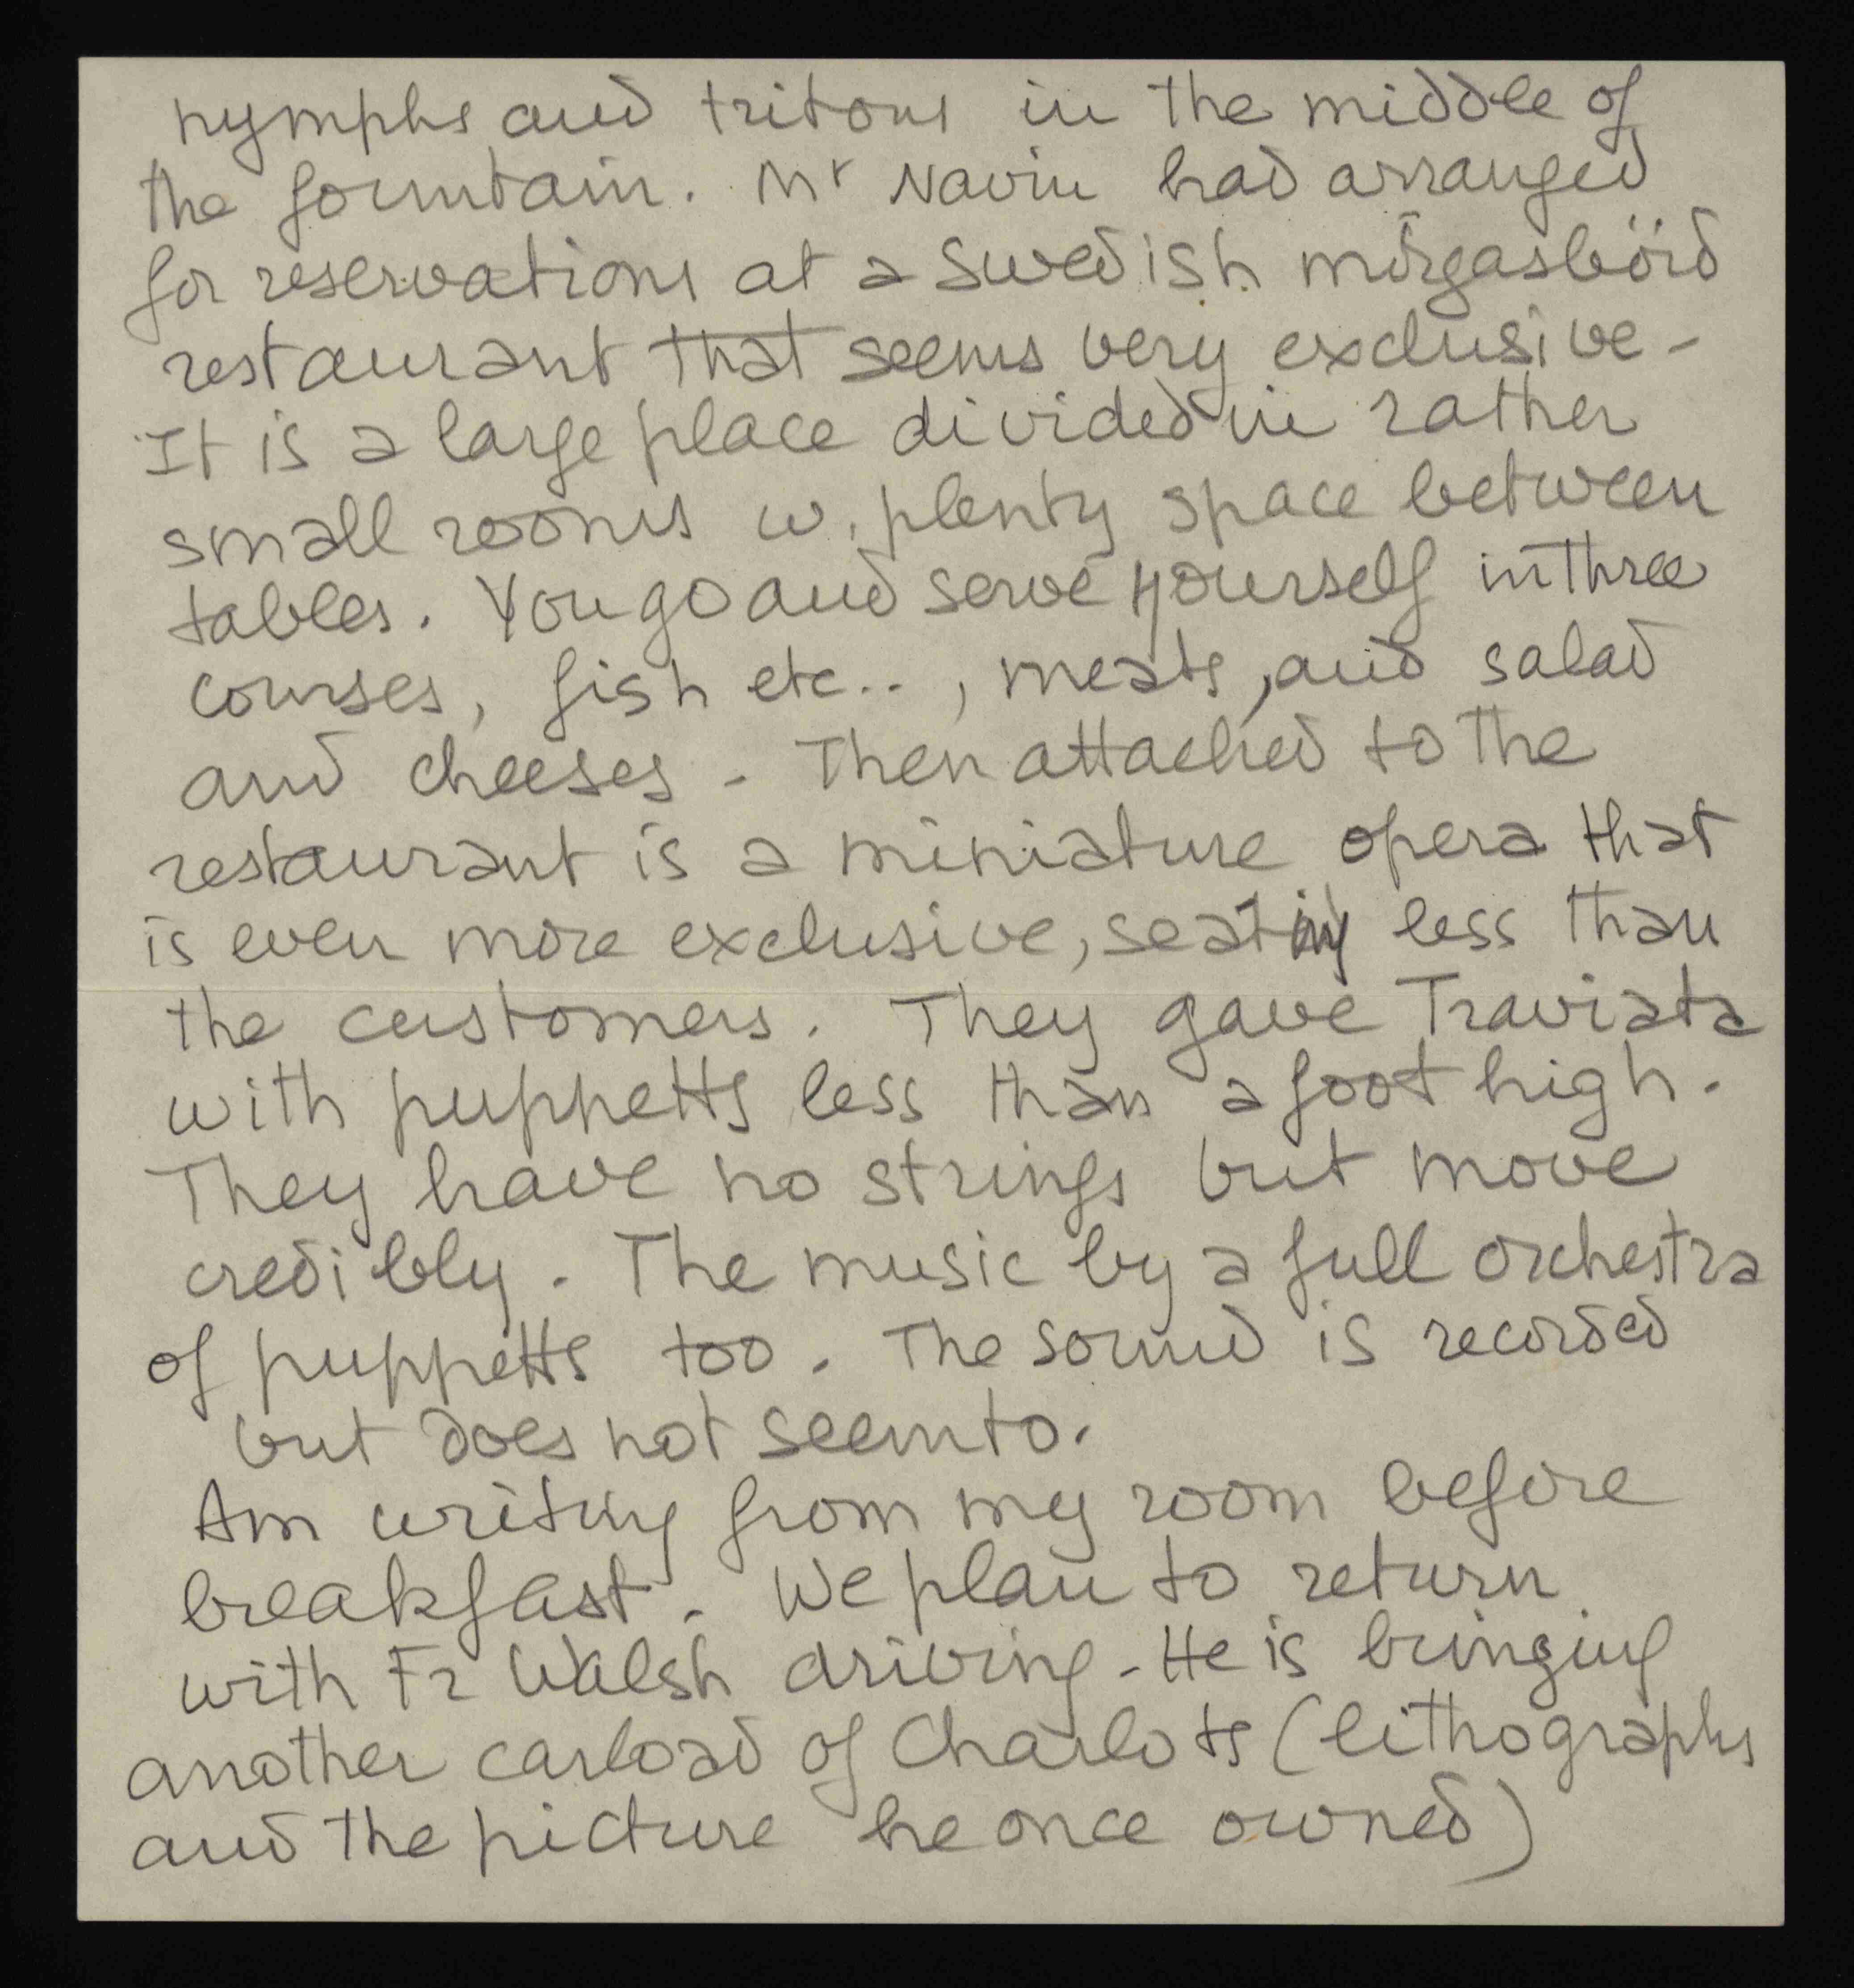 nymphs and tritons in the middle of
the fountain. Mr Navin had arranged
for reservations at a Swedish mörgasbörd
restaurant that seems very exclusive -
It is a large place divided in rather
small rooms w. plenty space between
tables. You go and serve yourself in three
courses, fish etc.. , meats, and salad
and cheeses - Then attached to the
restaurant is a miniature opera that
is even more exclusive, seating less than
the customers. They gave Traviata
with puppetts less than a foot high.
They have no strings but move
credibly. The music by a full orchestra
of puppetts too. The sound is recorded
but does not seem to.
Am writing from my room before
breakfast. We plan to return
with Fr Walsh driving - He is bringing
another carload of Charlots (lithographs
and the picture he once owned)